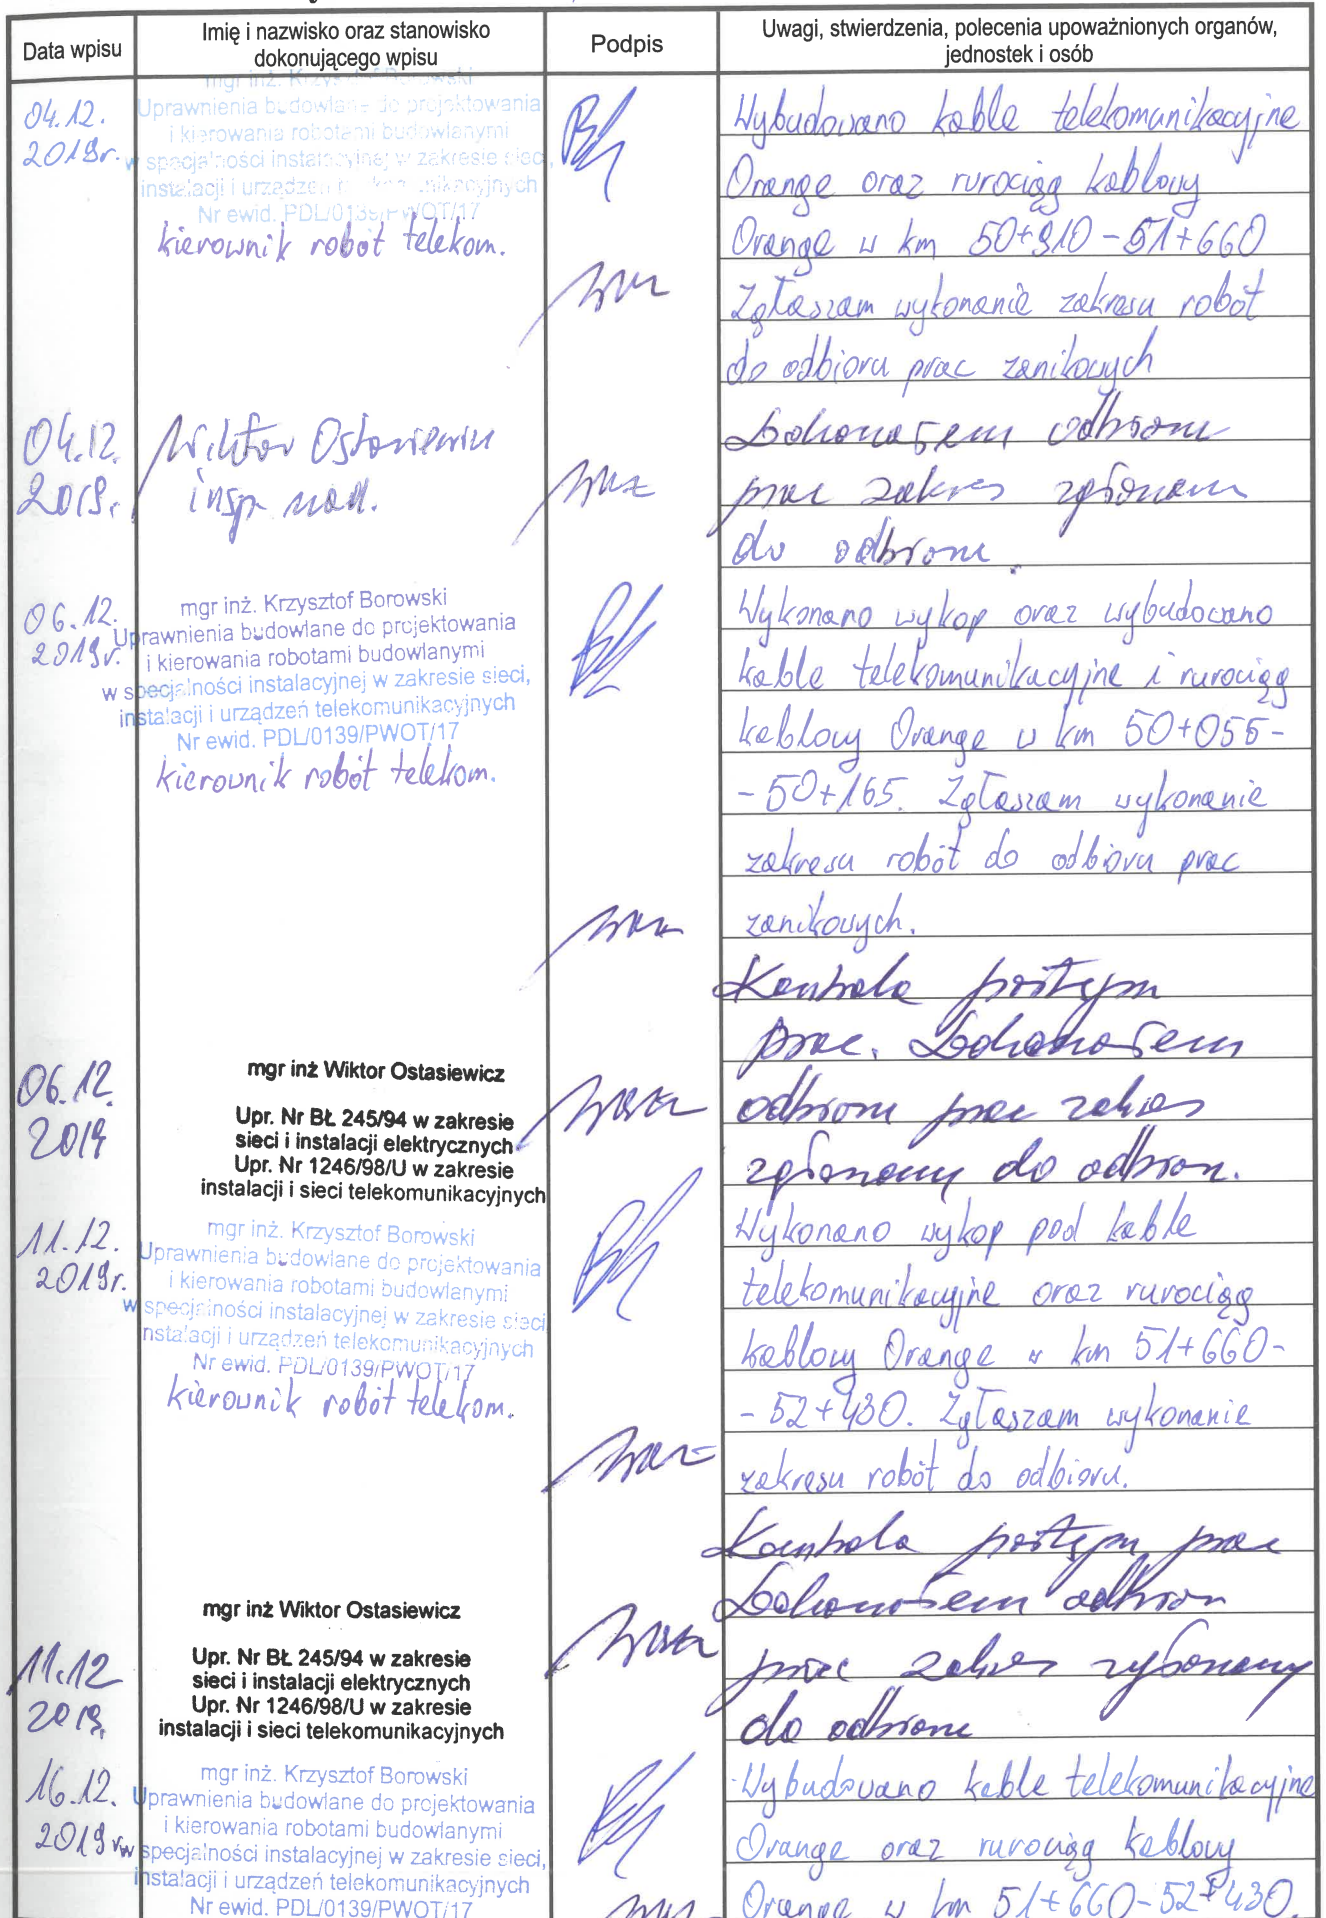 Data wpisu
Imię i nazwisko oraz stanowisko
dokonującego wpisu
Podpis
Uwagi, stwierdzenia, polecenia upoważnionych organów,
jednostek i osób
04.12.
2019r.
mgr inż. Krzysztof Borowski
Uprawnienia budowlane do projektowania
i kierowania robotami budowlanymi
w specjalności instalacyjnej w zakresie sieci,
instalacji i urządzeń telekomunikacyjnych
Nr ewid. PDL/0139/PWOT/17
kierownik robót telekom.
Wybudowano kable telekomunikacyjne
Orange oraz rurociąg kablowy
Orange w km 50+910-51+660
Zgłaszam wykonanie zakresu robót
do odbioru prac zanikowych
04.12.
2019.
Wiktor Ostasiewicz
insp. nad.
Dokonałem odbioru
prac zakres
do odbioru.
06.12.
2019r.
mgr inż. Krzysztof Borowski
Uprawnienia budowlane do projektowania
i kierowania robotami budowlanymi
w specjalności instalacyjnej w zakresie sieci,
instalacji i urządzeń telekomunikacyjnych
Nr ewid. PDL/0139/PWOT/17
kierownik robót telekom.
Wykonano wykop oraz wybudowano
kable telekomunikacyjne i rurociąg
kablowy Orange w km 50+055-
-50+165. Zgłaszam wykonanie
zakresu robót do odbioru prac
zanikowych.
06.12.
2019
mgr inż Wiktor Ostasiewicz
Upr. Nr BŁ 245/94 w zakresie
sieci i instalacji elektrycznych
Upr. Nr 1246/98/U w zakresie
instalacji i sieci telekomunikacyjnych
Kontrola postępu
prac. Dokonałem
odbioru prac zakres
zgłoszony do odbioru.
11.12.
2019r.
mgr inż. Krzysztof Borowski
Uprawnienia budowlane do projektowania
i kierowania robotami budowlanymi
w specjalności instalacyjnej w zakresie sieci
nstalacji i urządzeń telekomunikacyjnych
Nr ewid. PDL/0139/PWOT/17
kierownik robót telekom.
Wykonano wykop pod kable
telekomunikacyjne oraz rurociąg
kablowy Orange w km 51+660-
-52+430. Zgłaszam wykonanie
zakresu robót do odbioru.
11.12
2019.
mgr inż Wiktor Ostasiewicz
Upr. Nr BŁ 245/94 w zakresie
sieci i instalacji elektrycznych
Upr. Nr 1246/98/U w zakresie
instalacji i sieci telekomunikacyjnych
Kontrola postępu prac
Dokonałem odbioru
prac zakres zgłoszony
do odbioru
16.12.
2019r.
mgr inż. Krzysztof Borowski
Uprawnienia budowlane do projektowania
i kierowania robotami budowlanymi
w specjalności instalacyjnej w zakresie sieci,
instalacji i urządzeń telekomunikacyjnych
Nr ewid. PDL/0139/PWOT/17
Wybudowano kable telekomunikacyjne
Orange oraz rurociąg kablowy
Orange w km 51+660-52+430.